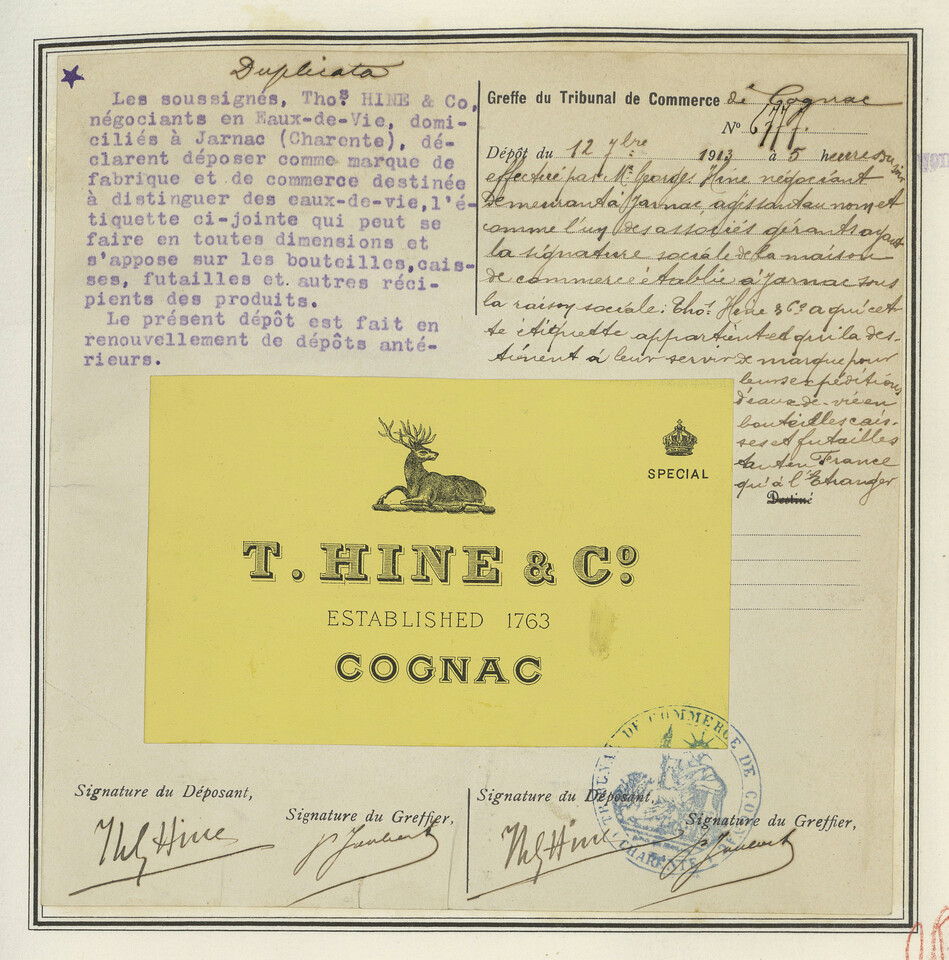 Duplicata
Les soussignés, Thos. HINE & Co,
négociants en Eaux-de-Vie, domi-
ciliés à Jarnac (Charente), dé-
clarent déposer comme marque de
fabrique et de commerce destinée
à distinguer des eaux-de-vie,l'é-
tiquette ci-jointe qui peut se
faire en toutes dimensions et
s'appose sur les bouteilles,cais-
ses, futailles et autres réci-
pients des produits.
Le présent dépôt est fait en
renouvellement de dépôts anté-
rieurs.
Greffe du Tribunal de Commerce de Cognac
No
Dépôt du 12 7bre 1913 à 5 heures du soir
effectué par Mr. Georges Hine négociant
Demeurant à Jarnac, agissant au nom et
comme l'un des associés gérants ayant
la signature sociale de la maison
de commerce établie à Jarnac sous
la raison sociale: Thos. Hine & Co a qui cet
te étiquette appartient et qui la des-
tinent à leur servir de marque pour
leurs expéditions
d'eaux-de-vie en
bouteilles cais-
ses et futailles
tant en France
qu'à l'Etranger
Destiné
SPECIAL
T. HINE & Co.
ESTABLISHED 1763
COGNAC
TRIBUNAL DE COMMERCE DE COGNAC
(CHARENTE)
Signature du Déposant,
Signature du Greffier,
Thos Hine
Signature du Déposant,
Signature du Greffier,
Thos Hine